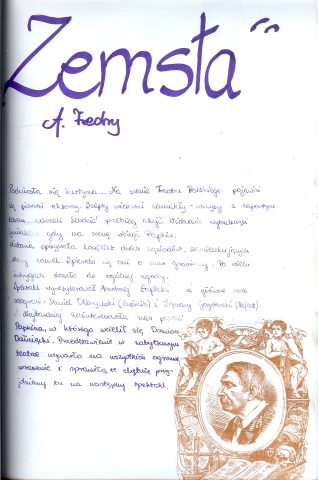 "Zemsta"
A. Fredry
Podniosła się kurtyna... Na scenie Teatru Polskiego pojawili
się pierwsi aktorzy. Szepty widowni zamilkły - wszyscy z zapartym
tchem zaczęli śledzić przebieg akcji. Widownię
śmiech gdy na scenę wbiegł Papkin.
Historia, opisująca konflikt dwóch sąsiadów, zamieszkujących
stary zamek. Spierają się oni o mur graniczny. Po wielu
intrygach doszło do ogólnej zgody.
Spektakl wyreżyserował Andrzej Łapicki a główne role
zagrali - Daniel Olbrychski (Cześnik) i Ignacy Gogolewski (Rejent).
Najbardziej zainteresowała nas postać
Papkina, w którego wcielił się Damian
Damięcki. Przedstawienie w zabytkowym
teatrze wywarło na wszystkich ogromne
wrażenie i sprawiło, że chętnie przy-
jdziemy tu na następny spektakl.